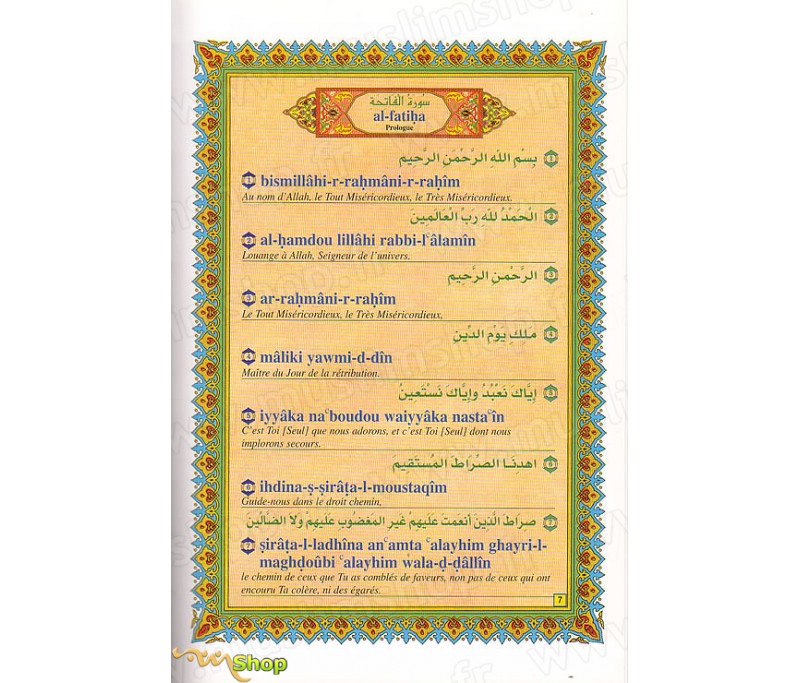 سورة الفاتحة
al-fatiḥa
Prologue
بِسْمِ اللهِ الرَّحْمَنِ الرَّحِيمِ 1
1 bismillâhi-r-raḥmâni-r-raḥîm
Au nom d'Allah, le Tout Miséricordieux, le Très Miséricordieux.
الْحَمْدُ للهِ رَبِّ الْعَالَمِينَ 2
2 al-ḥamdou lillâhi rabbi-lʿâlamîn
Louange à Allah, Seigneur de l'univers.
الرَّحْمنِ الرَّحِيمِ 3
3 ar-raḥmâni-r-raḥîm
Le Tout Miséricordieux, le Très Miséricordieux,
مَلِكِ يَوْمِ الدِّينِ 4
4 mâliki yawmi-d-dîn
Maître du Jour de la rétribution.
إِيَّاكَ نَعْبُدُ وإِيَّاكَ نَسْتَعِينُ 5
5 iyyâka naʿboudou waiyyâka nastaʿîn
C'est Toi [Seul] que nous adorons, et c'est Toi [Seul] dont nous
implorons secours.
اهدِنَــا الصِّرَاطَ المُستَقِيمَ 6
6 ihdina-ṣ-ṣirâṭa-l-moustaqîm
Guide-nous dans le droit chemin,
صِرَاطَ الَّذِينَ أَنعَمتَ عَلَيهِمْ غَيرِ المَغضُوبِ عَلَيهِمْ وَلاَ الضَّالِّينَ 7
7 ṣirâṭa-l-ladhîna anʿamta ʿalayhim ghayri-l-
maghḍoûbi ʿalayhim wala-ḍ-ḍâllîn
le chemin de ceux que Tu as comblés de faveurs, non pas de ceux qui ont
encouru Ta colère, ni des égarés.
7
Shop